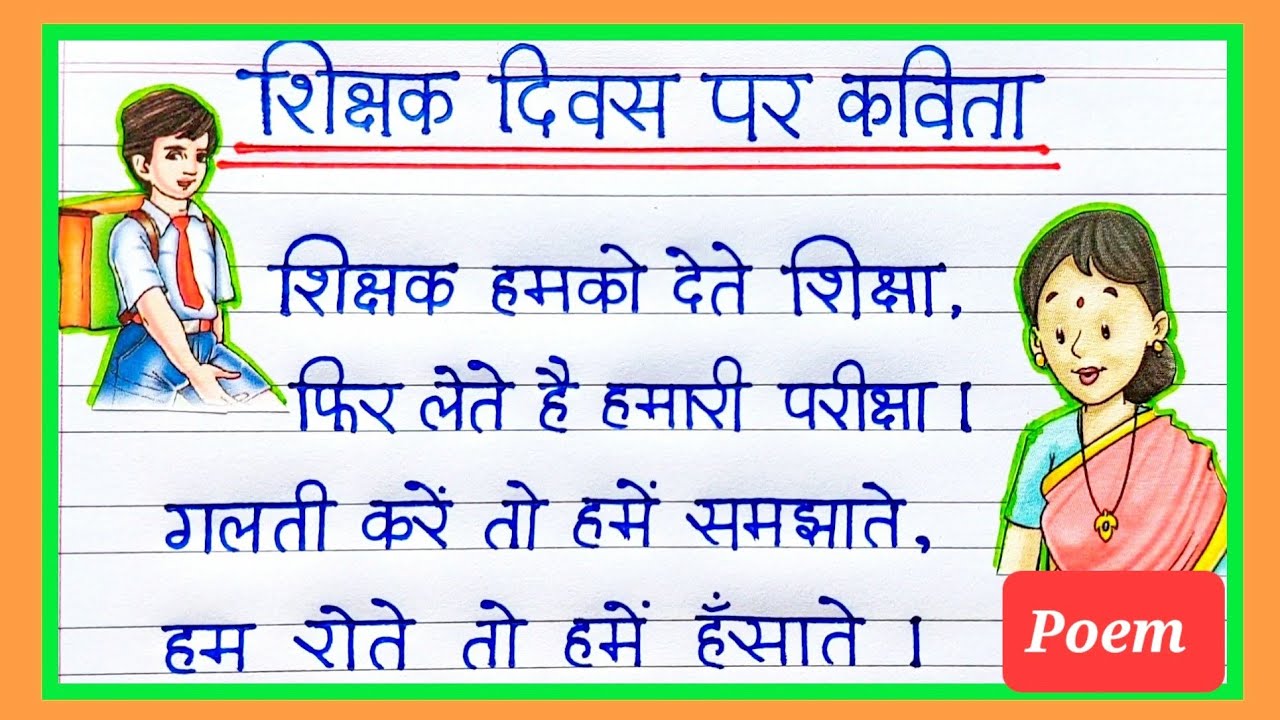 शिक्षक दिवस पर कविता
शिक्षक हमको देते शिक्षा,
फिर लेते है हमारी परीक्षा ।
गलती करें तो हमें समझाते,
हम रोते तो हमें हँसाते ।
Poem